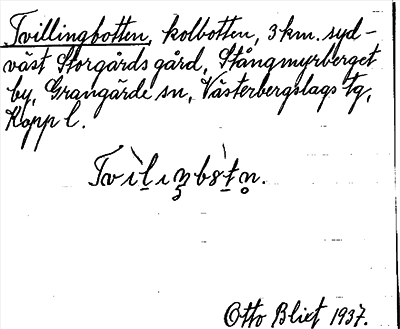 Tvillingbotten, kolbotten, 3 km. syd-
väst Storgårds gård, Stångmyrberget
by, Grangärde sn, Västerbergslags tg,
Kopp l.
Otto Blixt 1937.